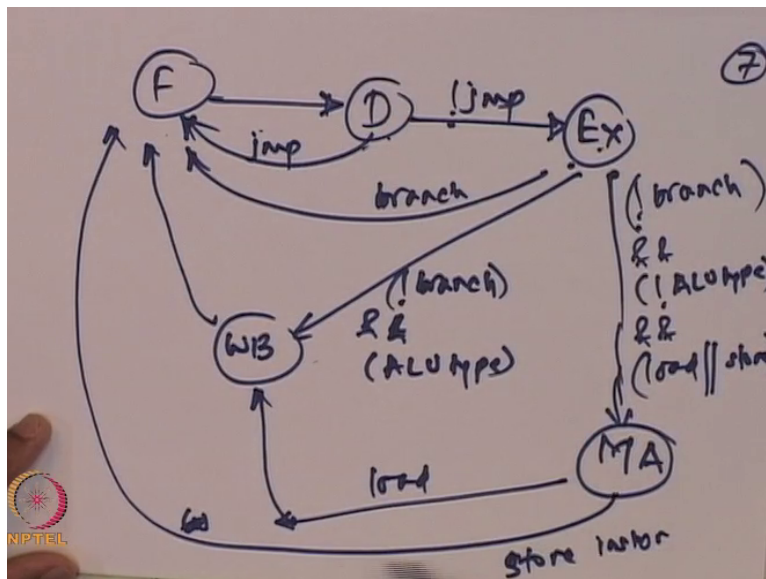 7
F
D
!jmp
Ex
jmp
branch
(!branch)
&&
(!ALUtype)
&&
(load||stor
(!branch)
&&
(ALUtype)
WB
MA
load
store instr
NPTEL